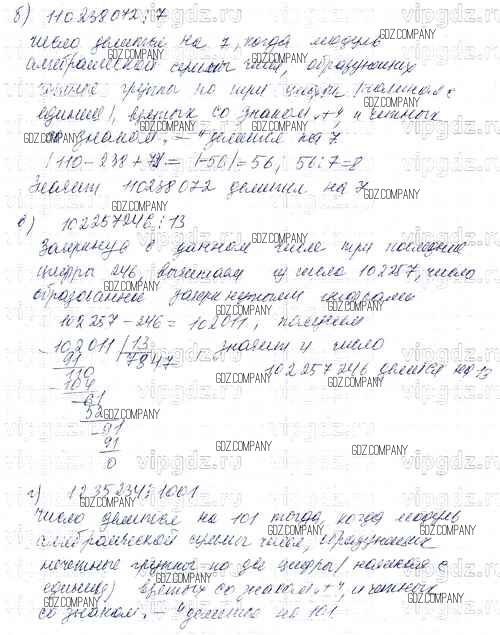 б) 110238072 : 7
число делится на 7, когда модуль
алгебраической суммы чисел, образующих
группы по три цифры (начиная с
единиц), взятых со знаком „+“, и четных
со знаком „−“ делится на 7
|110 − 238 + 72| = |−56| = 56, 56 : 7 = 8
Значит 110238072 делится на 7
в) 102257246 : 13
Зачеркнув в данном числе три последние
цифры 246, вычитаем из числа 102257, число
образованное зачеркнутыми цифрами
102257 − 246 = 102011, получаем
102011 | 13
91 7847
110
104
61
52
91
91
0
значит и число
102257246 делится на 13
г) 1235234 : 1001
Число делится на 101 тогда, когда модуль
алгебраической суммы чисел, образующих
нечетные группы по две цифры (начиная с
единиц) взятых со знаком „+“, и четных
со знаком „−“ делится на 101
GDZ.COMPANY
vipgdz.ru